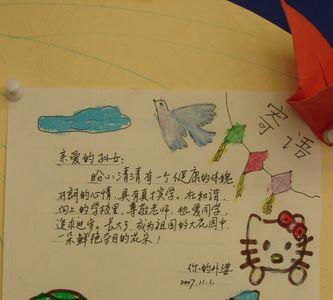 寄语
亲爱的孙女:
盼小清清有一个健康的体魄
开朗的心情,具有真才实学。在和谐
向上的学校里,尊敬老师,热爱同学,
追求进步。长大了,成为祖国的大花园中
一朵鲜艳夺目的花朵!
你的外婆
2007.11.1